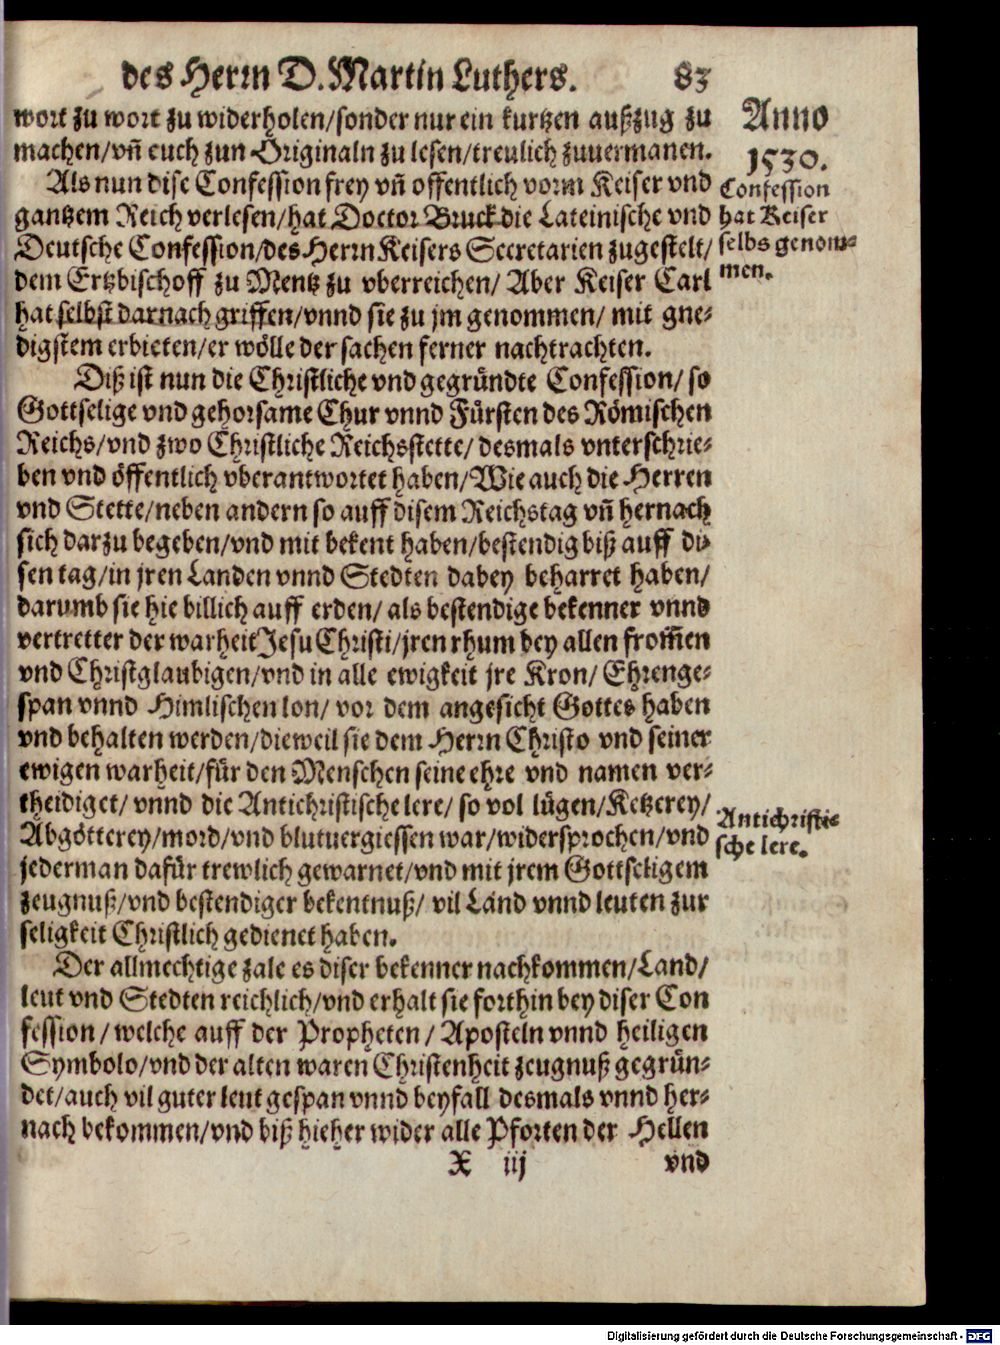 des Herrn D. Martin Luthers. 83
wort zu wort zu widerholen/sonder nur ein kurtzen außzug zu
machen/vñ euch zun Originaln zu lesen/treulich zuuermanen.
Als nun dise Confession frey vñ offentlich vorm Keiser vnd
gantzem Reich verlesen/hat Doctor Bruck die Lateinische vnd
Deutsche Confession/des Herrn Keisers Secretarien zugestelt/
dem Ertzbischoff zu Mentz zu vberreichen/ Aber Keiser Carl
hat selbst darnach griffen/vnnd sie zu jm genommen/ mit gne-
digstem erbieten/er wölle der sachen ferner nachtrachten.
Diß ist nun die Christliche vnd gegründte Confession/ so
Gottselige vnd gehorsame Chur vnnd Fürsten des Römischen
Reichs/vnd zwo Christliche Reichsstette/ desmals vnterschrie-
ben vnd öffentlich vberantwortet haben/Wie auch die Herren
vnd Stette/neben andern so auff disem Reichstag vñ hernach
sich darzu begeben/vnd mit bekent haben/bestendig biß auff di-
sen tag/in jren Landen vnnd Stedten dabey beharret haben/
darumb sie hie billich auff erden/ als bestendige bekenner vnnd
vertretter der warheit Jesu Christi/jren rhum bey allen from̃en
vnd Christglaubigen/vnd in alle ewigkeit jre Kron/ Ehrenge-
span vnnd Himlischen lon/ vor dem angesicht Gottes haben
vnd behalten werden/dieweil sie dem Herrn Christo vnd seiner
ewigen warheit/für den Menschen seine ehre vnd namen ver-
theidiget/ vnnd die Antichristische lere/ so vol lügen/Ketzerey/
Abgötterey/mord/vnd blutuergiessen war/widersprochen/vnd
jederman dafür trewlich gewarnet/vnd mit jrem Gottseligem
zeugnuß/vnd bestendiger bekentnuß/ vil Land vnnd leuten zur
seligkeit Christlich gedienet haben.
Der allmechtige zale es diser bekenner nachkommen/Land/
leut vnd Stedten reichlich/vnd erhalt sie forthin bey diser Con
fession/ welche auff der Propheten/ Aposteln vnnd heiligen
Symbolo/vnd der alten waren Christenheit zeugnuß gegrün-
det/auch vil guter leut gespan vnnd beyfall desmals vnnd her-
nach bekommen/vnd biß hieher wider alle Pforten der Hellen
X iij vnd
Anno
1530.
Confession
hat Keiser
selbs genom-
men.
Antichristi-
sche lere.
Digitalisierung gefördert durch die Deutsche Forschungsgemeinschaft - DFG